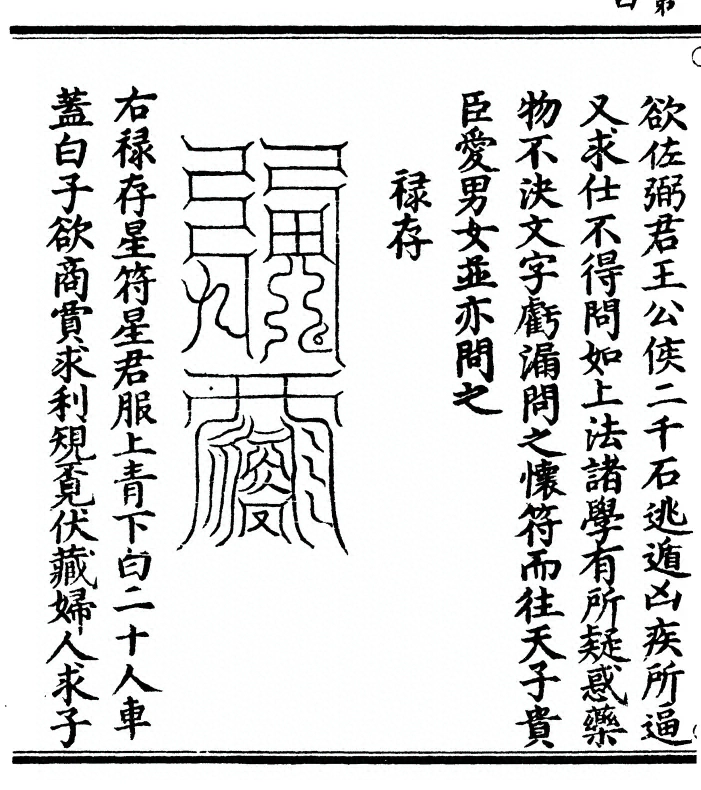 欲佐弼君王公侯二千石逃遁凶疾所逼
又求仕不得問如上法諸學有所疑惑藥
物不決文字虧漏問之懷符而往天子貴
臣愛男女並亦問之
祿存
右祿存星符星君服上青下白二十人車
蓋白子欲商賞求利規覔伏藏婦人求子